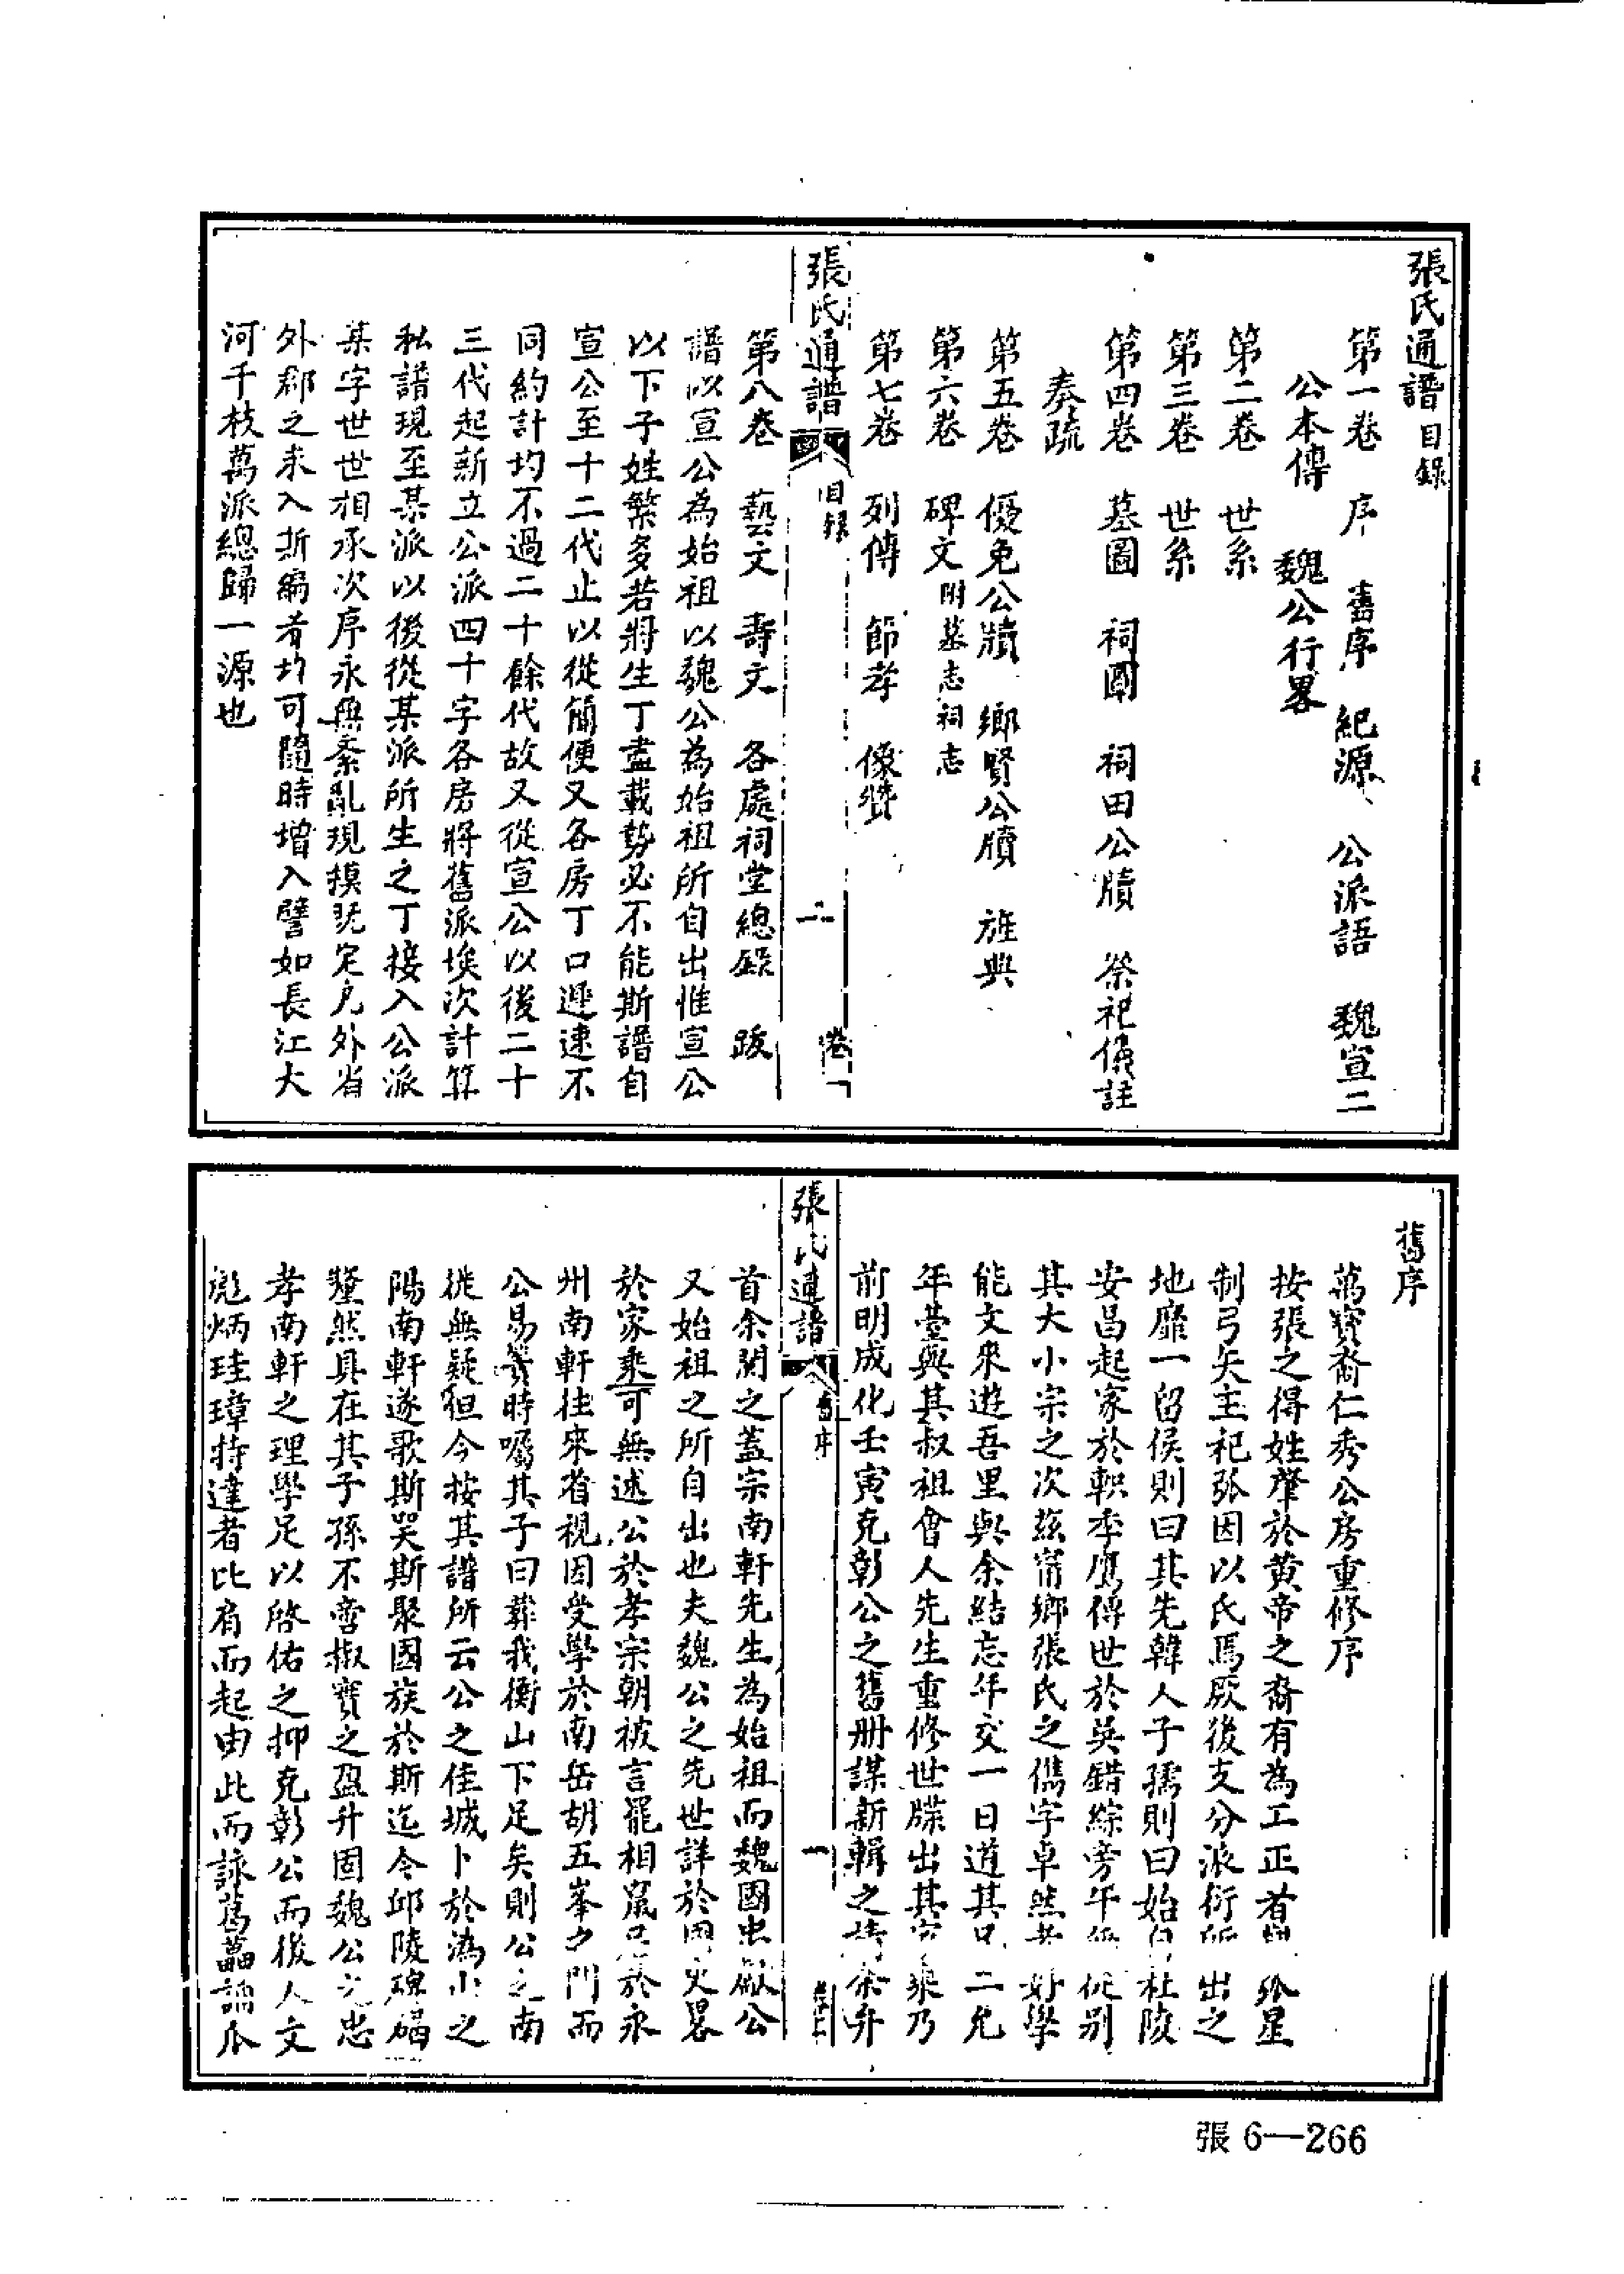 張氏通譜目錄
第一卷 序 舊序 紀源 公派語 魏宣二
公本傳 魏公行畧
第二卷 世系
第三卷 世系
第四卷 墓圖 祠圖 祠田公牘 祭祀儀註
奏疏
第五卷 優免公牘 鄉賢公牘 旌典
第六卷 碑文附墓志祠志
第七卷 列傳 節孝 像贊
張氏通譜 目錄 二 卷一
第八卷 藝文 壽文 各處祠堂總錄 跋
譜以宣公為始祖以魏公為始祖所自出惟宣公
以下子姓繁多若將生丁盡載勢必不能斯譜自
宣公至十二代止以從簡便又各房丁口遲速不
同約計圴不過二十餘代故又從宣公以後二十
三代起新立公派四十字各房將舊派埃次計算
私譜現至某派以後從某派所生之丁接入公派
某字世世相承次序永無紊亂現摸既定凡外省
外郡之未入斯編者均可隨時增入譬如長江大
河千枝萬派總歸一源也
舊序
萬寶裔仁秀公房重修序
按張之得姓肇於黃帝之裔有為工正者 弧星
制弓矢主祀弧因以氏焉厥後支分派衍所出之
地靡一留侯則曰其先韓人子孺則曰始 杜陵
安昌起家於軹季鷹傳世於吳錯綜旁午 從別
其大小宗之次茲甯鄉張氏之儁字卓然 好學
能文來遊吾里與余結忘年交一日道其 二允
年臺與其叔祖會人先生重修世牒出其 乘乃
前明成化壬寅克彰公之舊册謀新輯之 余弁
張氏通譜 舊序 一 卷上
首余閱之蓋宗南軒先生為始祖而魏國忠獻公
又始祖之所自出也夫魏公之先世詳於國史畧
於家乘可無述公於孝宗朝被言罷相竄 於永
州南軒往來省視因受學於南岳胡五峯之門而
公易簀時囑其子曰葬我衡山下足矣則公之南
徙無疑但今按其譜所云公之佳城卜於溈山之
陽南軒遂歌斯哭斯聚國族於斯迄今邱陵碑碣
釐然具在其子孫不啻椒實之盈升固魏公之忠
孝南軒之理學足以啓佑之抑克彰公而後人文
彪炳珪璋特達者比肩而起由此而詠葛藟誦瓜
張 6—266